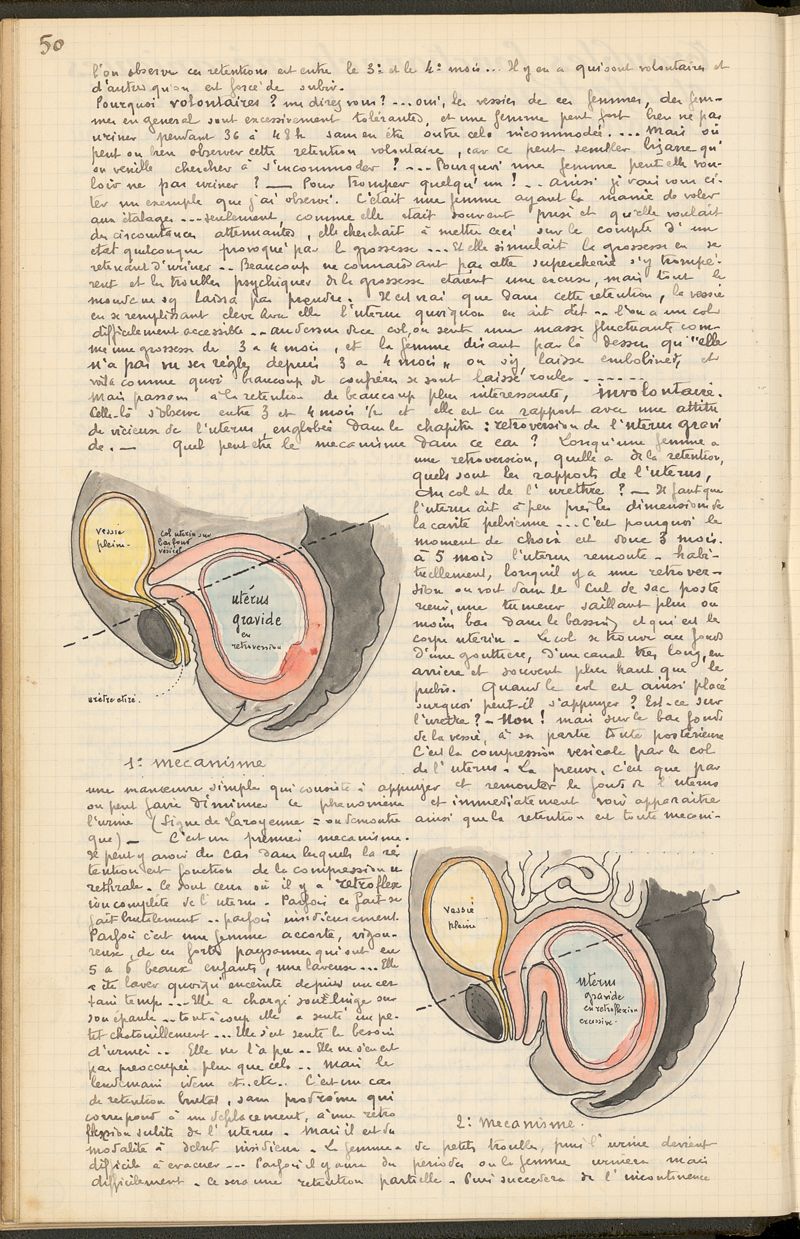 50
l'on observe ces retentions est entre le 3e et le 4e mois... Il y en a qui sont volontaires et
d'autres qu'on est forcé de subir.
Pourquoi volontaires ? me direz vous ?... oui, les vessies de ces femmes, des fem-
mes en general sont excessivement tolérantes, et une femme peut fort bien ne pas
uriner pendant 36 à 48h sans en être outre cela incommodée.... Mais où
peut on bien observer cette retention volontaire, car ce peut sembler bizarre qu'
on veuille chercher à s'incommoder ?... Pourquoi une femme peut elle vou-
loir ne pas uriner ? — Pour tromper quelqu'un !.. ainsi je vais vous ci-
ter un exemple que j'ai observé. C'était une femme ayant la manie de voler
aux étalages... seulement, comme elle etait souvent prise et qu'elle voulait
des circonstances attenuantes, elle cherchait à mettre ceci sur le compte d'un
etat quelconque provoqué par la grossesse... Et elle simulait la grossesse en se
retenant d'uriner.. Beaucoup ne connaissant pas cette supercherie s'y trompè-
rent et les troubles psychiques de la grossesse etaient une excuse, mais tout le
monde ne s'y laissa pas prendre. Il est vrai que dans cette retention, la vessie
en se remplissant eleve avec elle l'uterus quoiqu'on en ait dit.. l'on a un col
difficilement accessible.. au dessus de ce col, on sent une masse fluctuante com-
me une grossesse de 3 à 4 mois, et la femme disant par là dessus qu'"elle
n'a pas vu ses règles depuis 3 à 4 mois", on s'y laisse embobiner, et
voilà comme quoi beaucoup de confrères se sont laissé rouler.------
Mais passons à la retention de beaucoup plus interessante, involontaire.
Celle-là s'observe entre 3 et 4 mois ½ et elle est en rapport avec une attitu
de vicieuse de l'uterus, englobée dans le chapitre : retroversion de l'uterus gravi
de. — Quel peut etre le mecanisme dans ce cas ? Lorsqu'une femme a
une retroversion, qu'elle a de la retention,
quels sont les rapports de l'uterus,
du col et de l'urethre ? — Il faut que
l'uterus ait à peu près les dimensions de
la cavité pelvienne... C'est pourquoi le
moment de choix est donc 3 mois.
à 5 mois l'uterus remonte. habi-
tuellement, lorsqu'il y a une retrover-
sion on voit dans le cul de sac poste
rieur, une tumeur saillant plus ou
moins bas dans le bassin, et qui est le
corps uterin. Le col se trouve au fond
d'une gouttiere, d'un canal très long, en
arriere et souvent plus haut que le
pubis. Quand le col est ainsi placé
sur quoi peut-il s'appuyer ? Est-ce sur
l'uretre ? - Non ! mais sur le bas fonds
de la vessie, à sa partie toute postérieure
C'est la compression vesicale par le col
de l'uterus. La preuve, c'est que par
vessie
pleine.
col uterin sur
bas fond
vesical
utérus
gravide
en
retroversion
urètre etiré.
1e mecanisme
une manœuvre simple qui consiste à appuyer et remonter le fond de l'uterus
on peut faire diminuer ce phenomène et immediatement voir apparaitre
l'urine (signe de Laroyenne = on demontre ainsi que la retention est toute mecani-
que) — C'est un premier mecanisme.
Il peut y avoir des cas dans lesquels la re
tention est fonction de la compression u
rethrale. Ce sont ceux où il y a retroflex
ion complete de l'uterus. Parfois ce fait se
fait brutalement.. parfois insidieusement.
Parfois c'est une femme accorte, vigou-
reuse, de ces fortes paysannes qui ont eu
5 à 6 beaux enfants, une laveuse... Elle
a été laver quoiqu'enceinte depuis un cer
tain temps... Elle a chargé son linge sur
son épaule.. tout à coup elle a senti un pe-
tit chatouillement... Elle s'est sentie le besoin
d'uriner.. Elle ne l'a pu.. Elle ne s'en est
pas preoccupée plus que cela.. Mais le
lendemain idem et.. etc.. C'est un cas
de retention brutal, sans prodrome qui
correspond à un deplacement, à une retro
flexion subite de l'uterus. Mais il est des
modalités à début insidieux. La femme a de petits troubles, puis l'urine devient
difficile à evacuer... Parfois il y aura des periodes ou la femme urinera mais
difficilement. Ce sera une retention partielle. Puis succedera de l'incontinence
vessie
pleine
uterus
gravide
en retroflexion
excessive.
2e mecanisme.